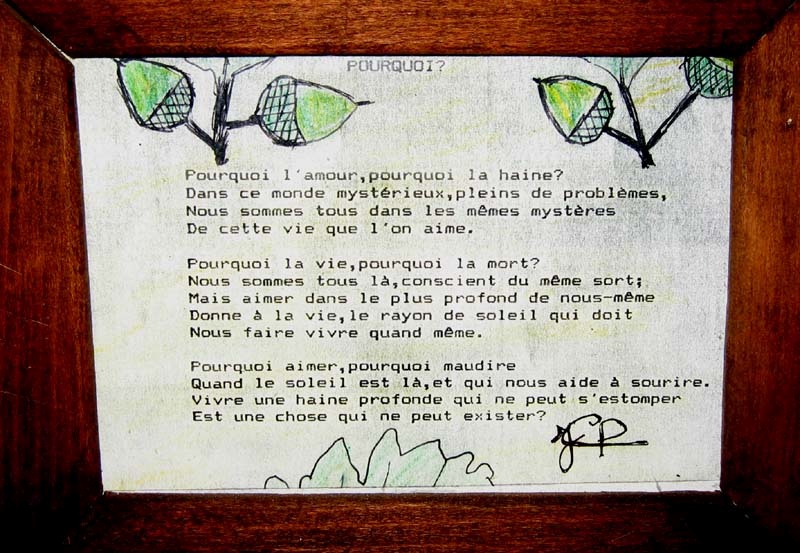 POURQUOI?
Pourquoi l'amour,pourquoi la haine?
Dans ce monde mystérieux,pleins de problèmes,
Nous sommes tous dans les mêmes mystères
De cette vie que l'on aime.
Pourquoi la vie,pourquoi la mort?
Nous sommes tous là,conscient du même sort;
Mais aimer dans le plus profond de nous-même
Donne à la vie,le rayon de soleil qui doit
Nous faire vivre quand même.
Pourquoi aimer,pourquoi maudire
Quand le soleil est là,et qui nous aide à sourire.
Vivre une haine profonde qui ne peut s'estomper
Est une chose qui ne peut exister?